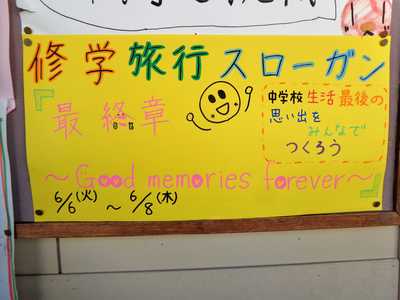 修学旅行スローガン
『最終章
中学校生活最後の
思い出を
みんなで
つくろう
~Good memories forever~』
6/6(火) ~ 6/8(木)